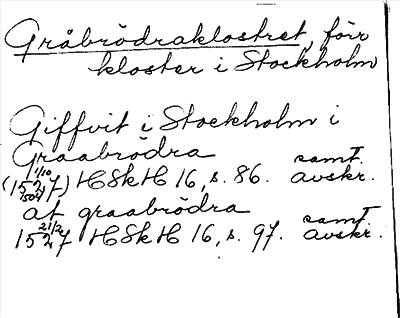 Gråbrödraklostret, förr
kloster i Stockholm
Giffvit i Stockholm i
Graabrödra samt.
(15 1/10 27) HSkH 16, s. 86. avskr.
at graabrödra samt.
15 21/2 27 HSkH 16, s. 97. avskr.